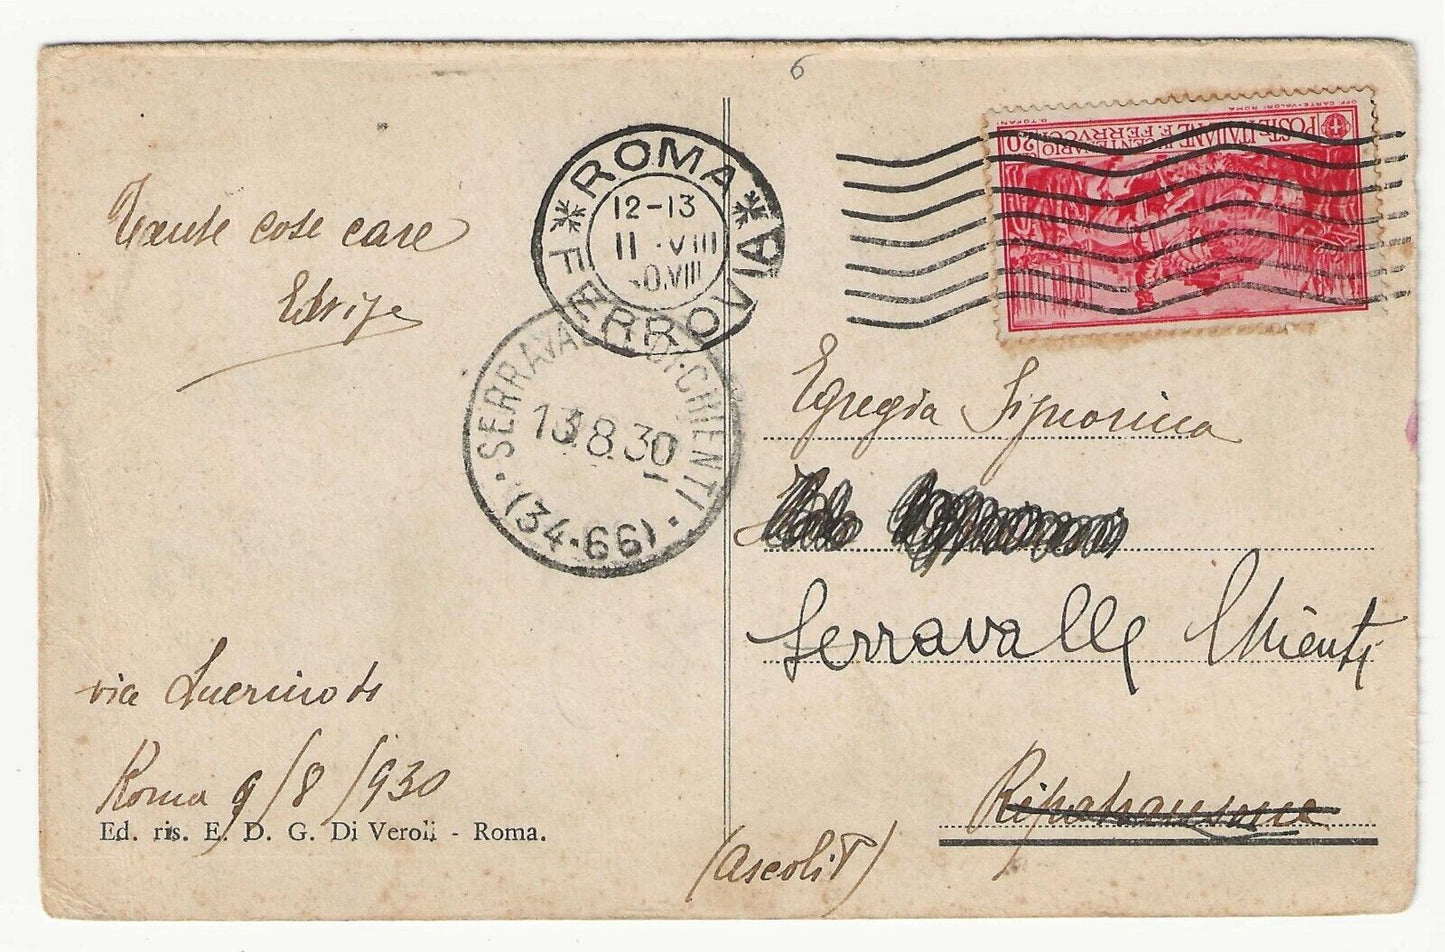 6
Tante cose care
Edvige
via Lucrino
Roma 9/8/930
Ed. ris. E. D. G. Di Veroli - Roma.
ROMA
FERROVIA
12-13
11 VIII
30.VIII
SERRAVALLE DI CHIENTI
13.8.30
(34-66)
OFF. CARTE-VALORI ROMA
POSTE ITALIANE F. FERRVCCI
IV CENTENARIO
20
Egregia Signorina
Serravalle Chienti
Ripatransone
(Ascoli P)